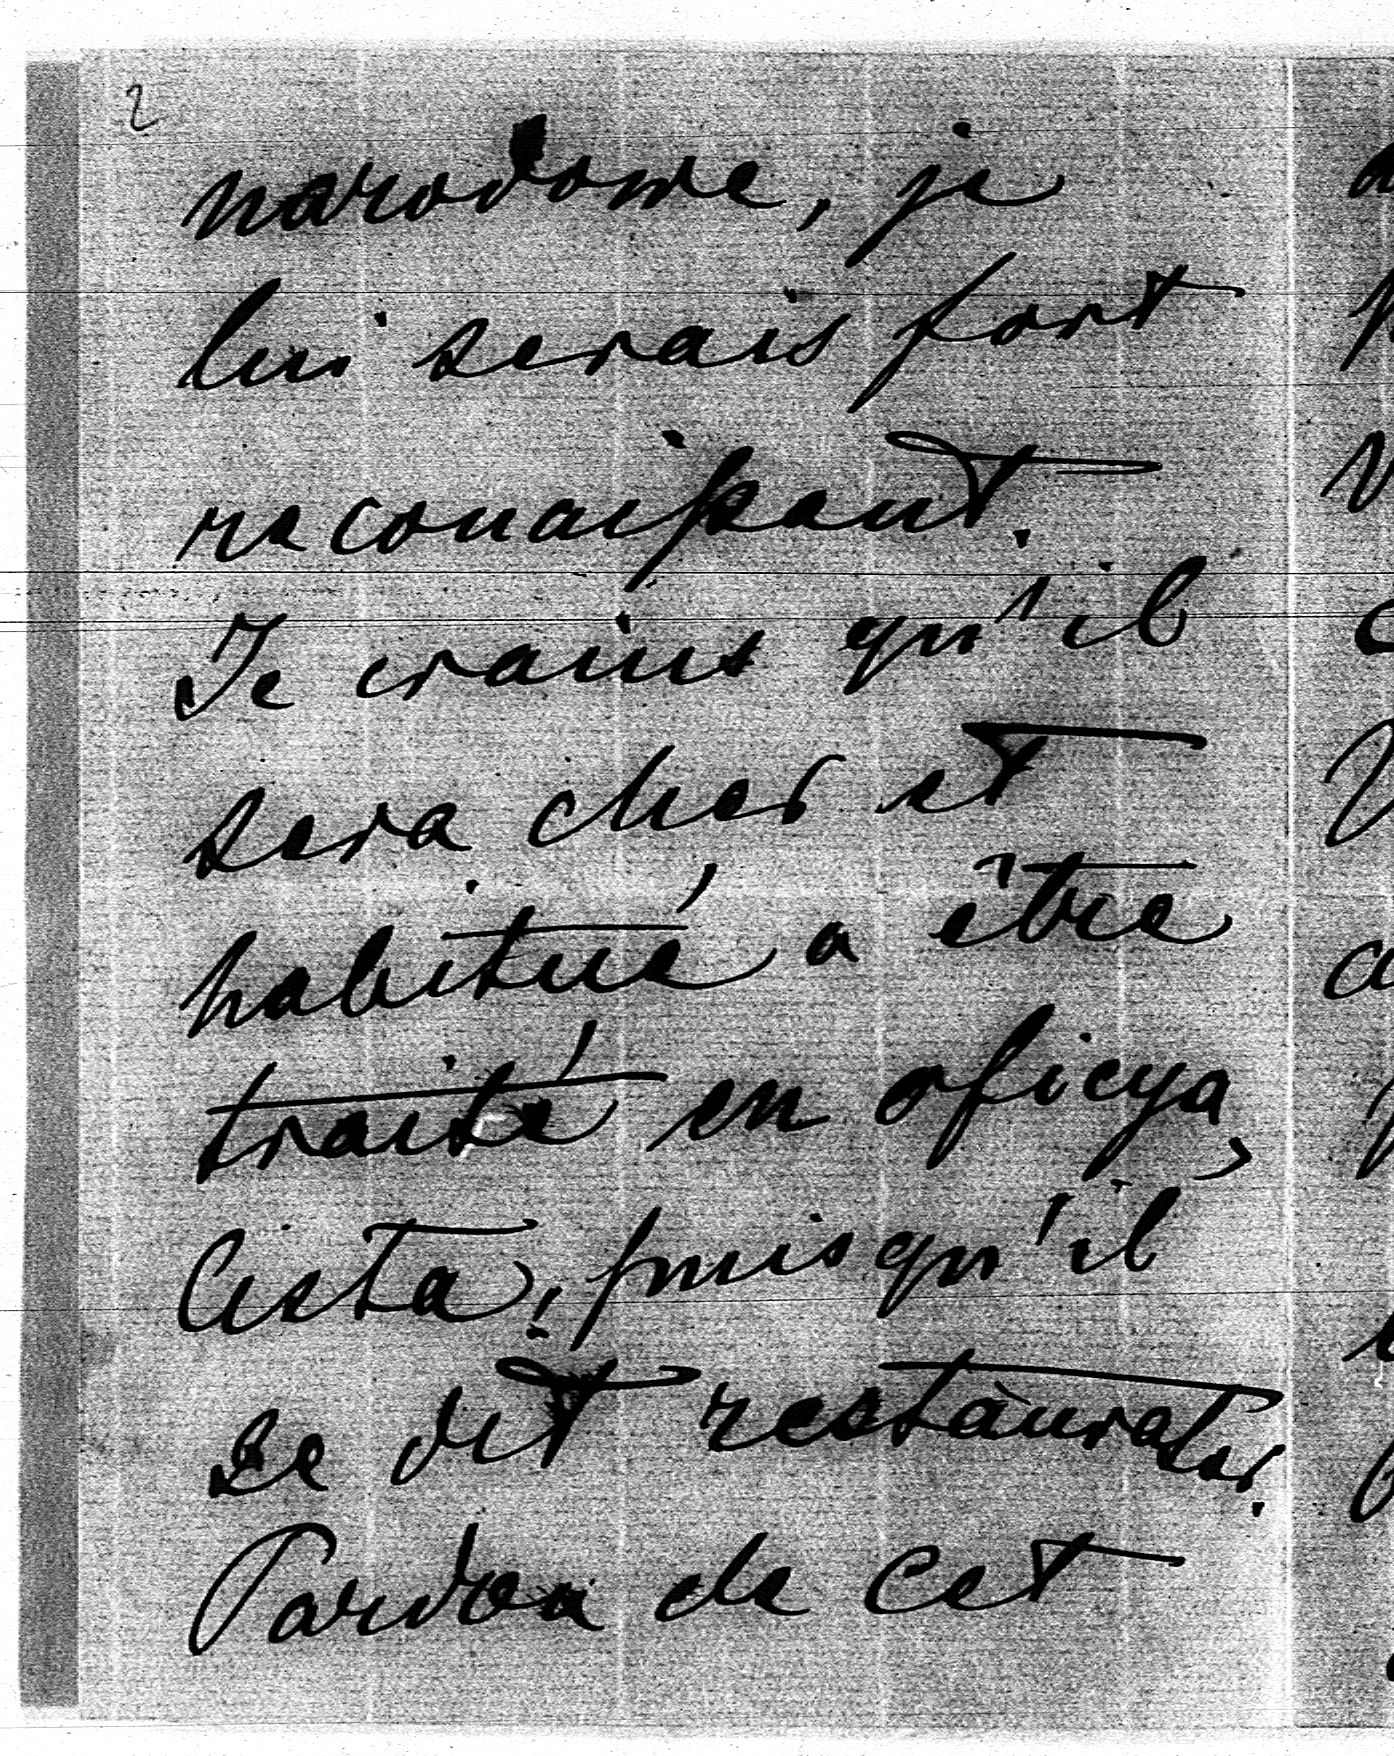 2
narodowe, je
lui serais fort
reconaissant.
Je crains qu'il
sera cher et
habitué a être
traité en oficya,
lista, puisqu'il
se dit restaurator.
Pardon de cet